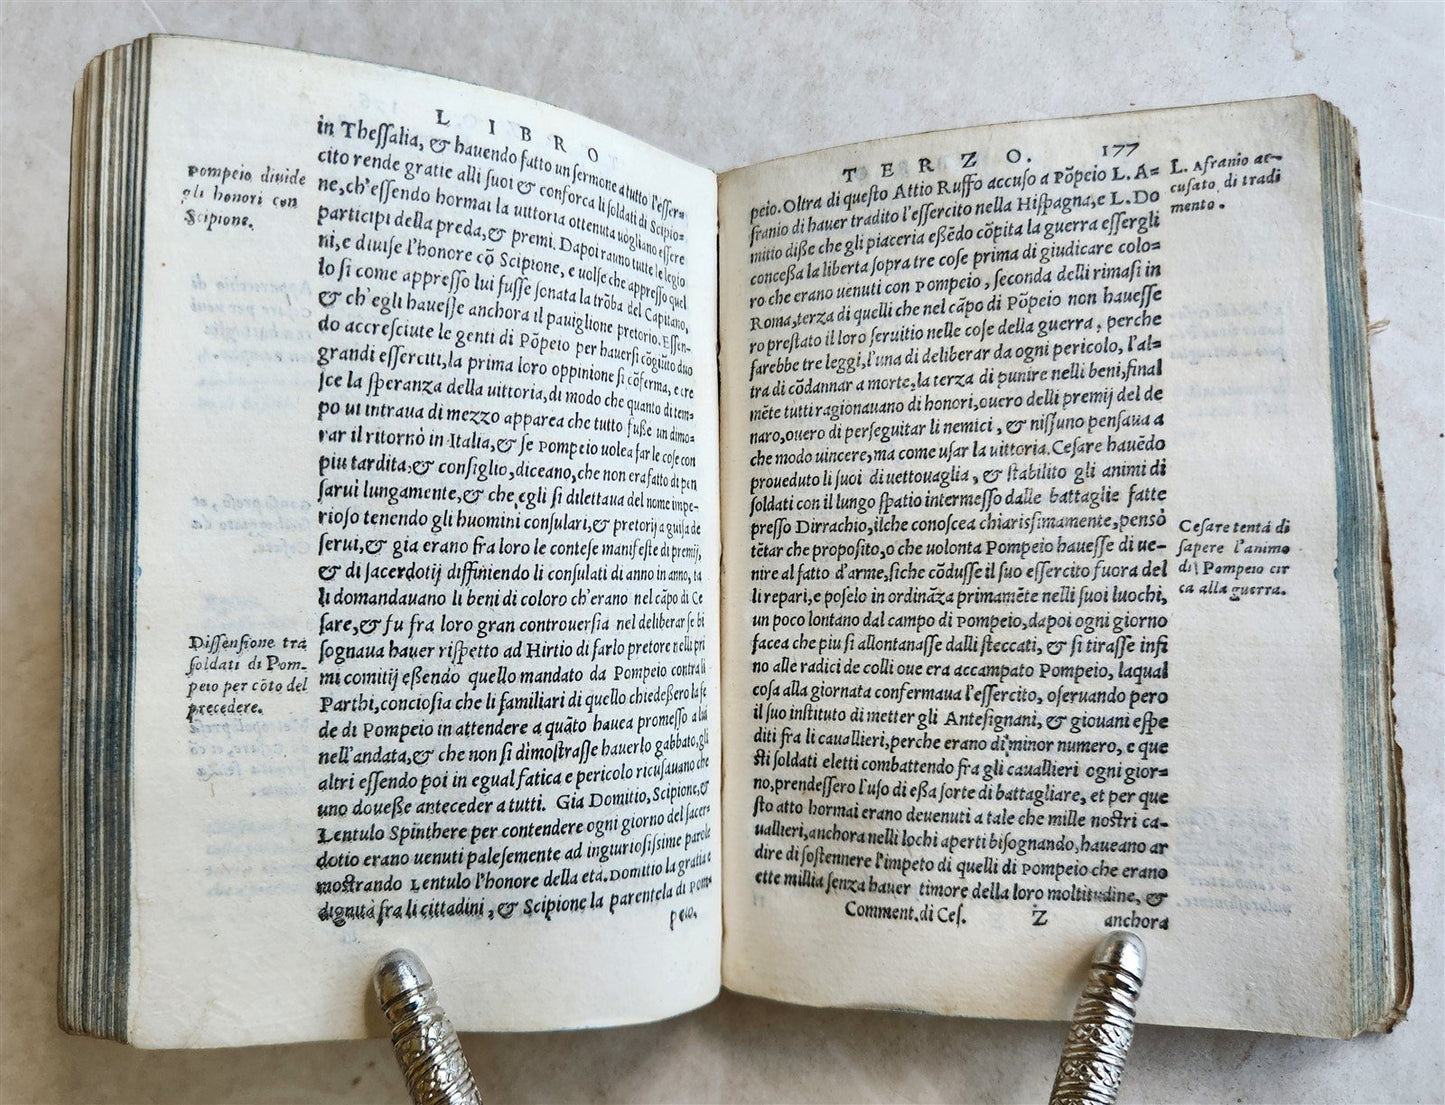 LIBRO
in Thessalia, & hauendo fatto un sermone a tutto l'esser-
cito rende gratie alli suoi & conforca li soldati di Scipio-
ne, ch'essendo hormai la uittoria ottenuta uogliano essere
participi della preda, & premi. Dapoi rauno tutte le legio
ni, e diuise l'honore cō Scipione, e uolse che appresso quel
lo si come appresso lui fusse sonata la trōba del Capitano,
& ch'egli hauesse anchora il pauiglione pretorio. Essen-
do accresciute le genti di Pōpeio per hauersi cōgiūto duo
grandi esserciti, la prima loro oppinione si cōferma, e cre
sce la speranza della uittoria, di modo che quanto di tem-
po ui intraua di mezzo apparea che tutto fuße un dimo-
rar il ritorno in Italia, & se Pompeio uolea far le cose con
piu tardita, & consiglio, diceano, che non era fatto di pen
sarui lungamente, & che egli si dilettaua del nome impe-
rioso tenendo gli huomini consulari, & pretorij a guisa de
serui, & gia erano fra loro le contese manifeste di premij,
& di sacerdotij diffiniendo li consulati di anno in anno, ta
li domandauano li beni di coloro ch'erano nel cāpo di Ce
sare, & fu fra loro gran controuersia nel deliberar se bi
sognaua hauer rispetto ad Hirtio di farlo pretore nelli pri
mi comitij eßendo quello mandato da Pompeio contra li
Parthi, conciosia che li familiari di quello chiedeßero la fe
de di Pompeio in attendere a quāto hauea promesso a lui
nell'andata, & che non si dimostrasse hauerlo gabbato, gli
altri essendo poi in egual fatica e pericolo ricusauano che
uno doueße anteceder a tutti. Gia Domitio, Scipione, &
Lentulo Spinthere per contendere ogni giorno del sacer-
dotio erano uenuti palesemente ad ingiuriosissime parole
mostrando Lentulo l'honore della età. Domitio la gratia e
dignità fra li cittadini, & Scipione la parentela di Pom-
peio.
Pompeio diuide
gli honori con
Scipione.
Dissensione tra
soldati di Pom-
peio per cōto del
precedere.
TERZO. 177
peio. Oltra di questo Attio Ruffo accuso a Pōpeio L. A-
franio di hauer tradito l'essercito nella Hispagna, e L. Do
mitio diße che gli piaceria eßēdo cōpita la guerra essergli
conceßa la liberta sopra tre cose prima di giudicare colo-
ro che erano uenuti con Pompeio, seconda delli rimasi in
Roma, terza di quelli che nel cāpo di Pōpeio non hauesse
ro prestato il loro seruitio nelle cose della guerra, perche
sarebbe tre leggi, l'una di deliberar da ogni pericolo, l'al-
tra di cōdannar a morte, la terza di punire nelli beni, final
mēte tutti ragionauano di honori, ouero delli premij del de
naro, ouero di perseguitar li nemici, & nissuno pensaua a
che modo uincere, ma come usar la uittoria. Cesare hauēdo
proueduto li suoi di uettouaglia, & stabilito gli animi di
soldati con il lungo spatio intermesso dalle battaglie fatte
presso Dirrachio, ilche conoscea chiarissimamente, pensò
tētar che proposito, o che uolonta Pompeio hauesse di ue-
nire al fatto d'arme, siche cōdusse il suo essercito fuora del
li repari, e poselo in ordināza primamēte nelli suoi luochi,
un poco lontano dal campo di Pompeio, dapoi ogni giorno
facea che piu si allontanasse dalli steccati, & si tirasse infi
no alle radici de colli oue era accampato Pompeio, laqual
cosa alla giornata confermaua l'essercito, oseruando pero
il suo instituto di metter gli Antesignani, & giouani espe
diti fra li cauallieri, perche erano di minor numero, e que
sti soldati eletti combattendo fra gli cauallieri ogni gior-
no, prendessero l'uso di eßa sorte di battagliare, et per que
sto atto hormai erano deuenuti a tale che mille nostri ca-
uallieri, anchora nelli lochi aperti bisognando, haueano ar
dire di sostennere l'impeto di quelli di Pompeio che erano
ette millia senza hauer timore della loro moltitudine, &
Comment. di Ces. Z anchora
L. Afranio ac-
cusato di tradi
mento.
Cesare tenta di
sapere l'animo
di Pompeio cir
ca alla guerra.